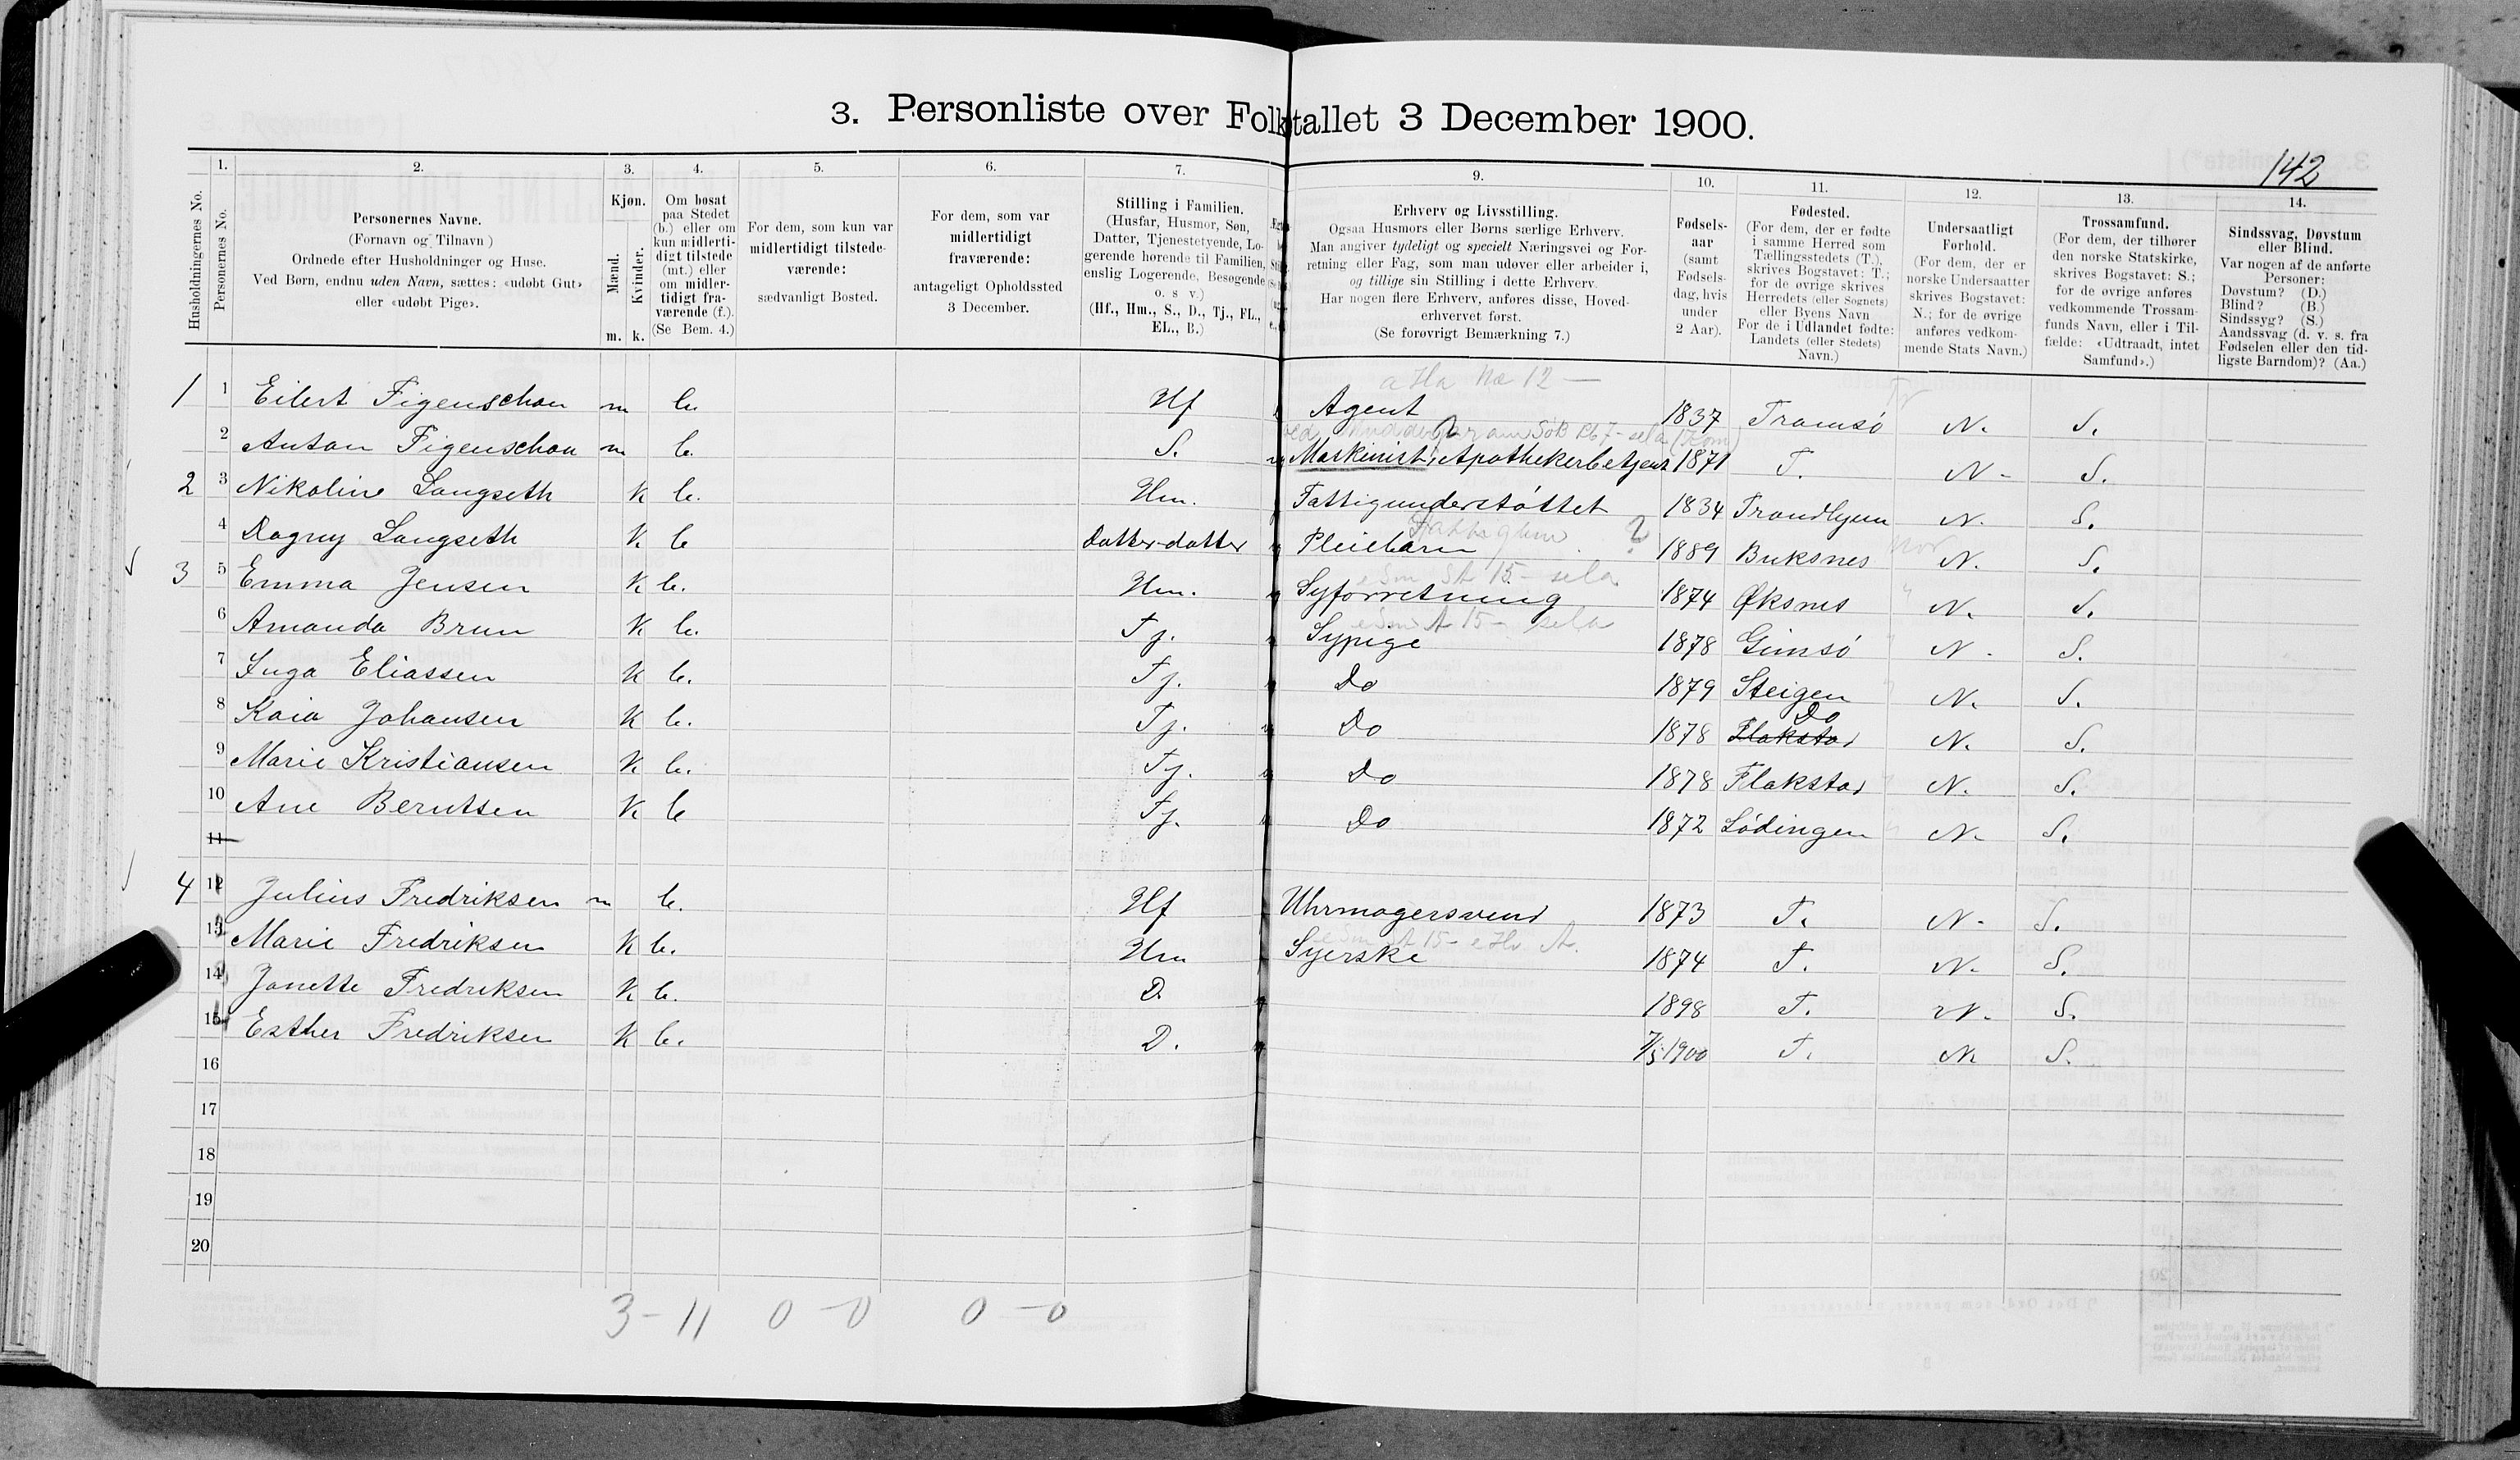 3. Personliste over Folketallet 3 December 1900.
142
1. 2. 3. 4. 5. 6. 7. 9. 10. 11. 12. 13. 14.
Husholdningernes No.
Personernes No.
Personernes Navne.
(Fornavn og Tilnavn)
Ordnede efter Husholdninger og Huse.
Ved Børn, endnu uden Navn, sættes: «udøbt Gut»
eller «udøbt Pige».
Kjøn.
Mænd.
Kvinder.
m. k.
Om bosat
paa Stedet
(b.) eller om
kun midlerti-
digt tilstede
(mt.) eller
om midler-
tidigt fra-
værende (f.).
(Se Bem. 4.)
For dem, som kun var
midlertidigt tilstede-
værende:
sædvanligt Bosted.
For dem, som var
midlertidigt
fraværende:
antageligt Opholdssted
3 December.
Stilling i Familien.
(Husfar, Husmor, Søn,
Datter, Tjenestetyende, Lo-
gerende hørende til Familien,
enslig Logerende, Besøgende
o. s v.)
(Hf., Hm., S., D., Tj., FL.,
EL., B.)
Erhverv og Livsstilling.
Ogsaa Husmors eller Børns særlige Erhverv.
Man angiver tydeligt og specielt Næringsvei og For-
retning eller Fag, som man udøver eller arbeider i,
og tillige sin Stilling i dette Erhverv.
Har nogen flere Erhverv, anføres disse, Hoved-
erhvervet først.
(Se forøvrigt Bemærkning 7.)
Fødsels-
aar
(samt
Fødsels-
dag, hvis
under
2 Aar).
Fødested.
(For dem, der er fødte
i samme Herred som
Tællingsstedets (T.),
skrives Bogstavet: T.;
for de øvrige skrives
Herredets (eller Sognets)
eller Byens Navn
For de i Udlandet fødte:
Landets (eller Stedets)
Navn.)
Undersaatligt
Forhold.
(For dem, der er
norske Undersaatter
skrives Bogstavet:
N.; for de øvrige
anføres vedkom-
mende Stats Navn.)
Trossamfund.
(For dem, der tilhører
den norske Statskirke,
skrives Bogstavet: S.;
for de øvrige anføres
vedkommende Trossam-
funds Navn, eller i Til-
fælde: «Udtraadt, intet
Samfund».)
Sindssvag, Døvstum
eller Blind.
Var nogen af de anførte
Personer:
Døvstum? (D.)
Blind? (B.)
Sindssyg? (S.)
Aandssvag (d. v. s. fra
Fødselen eller den tid-
ligste Barndom)? (Aa.)
1 1 Eilert Figenschau m b. Hf Agent 1837 Tromsö N. S.
2 Anton Figenschau m b. S. Maskinist, Apothekerbetjent 1871 T. N. S.
2 3 Nikoline Langseth k b. Hm. Fattigunderstöttet 1834 Trondhjem N. S.
4 Dagny Langseth k b Datter-datter Pleiebarn ? 1889 Buksnes N. S.
3 5 Emma Jensen k b. Hm. Syforretning 1874 Øksnes N. S.
6 Amanda Brun k b. Tj. Sypige 1878 Gimsö N. S.
7 Inga Eliassen k b. Tj. Do 1879 Steigen N. S.
8 Kaia Johansen k b. Tj. Do 1878 Flakstad Do N. S.
9 Marie Kristiansen k b. Tj. Do 1878 Flakstad N. S.
10 Ane Berntsen k b Tj. Do 1872 Lödingen N. S.
11
4 12 Julius Fredriksen m b. Hf Uhrmagersvend 1873 T. N. S.
13 Marie Fredriksen k b. Hm Syerske 1874 T. N. S.
14 Janette Fredriksen k b. D. 1898 T. N. S.
15 Esther Fredriksen k b. D. 7/5 1900 T. N S.
16
17
18
19
20
3 - 11 0 - 0 0 - 0